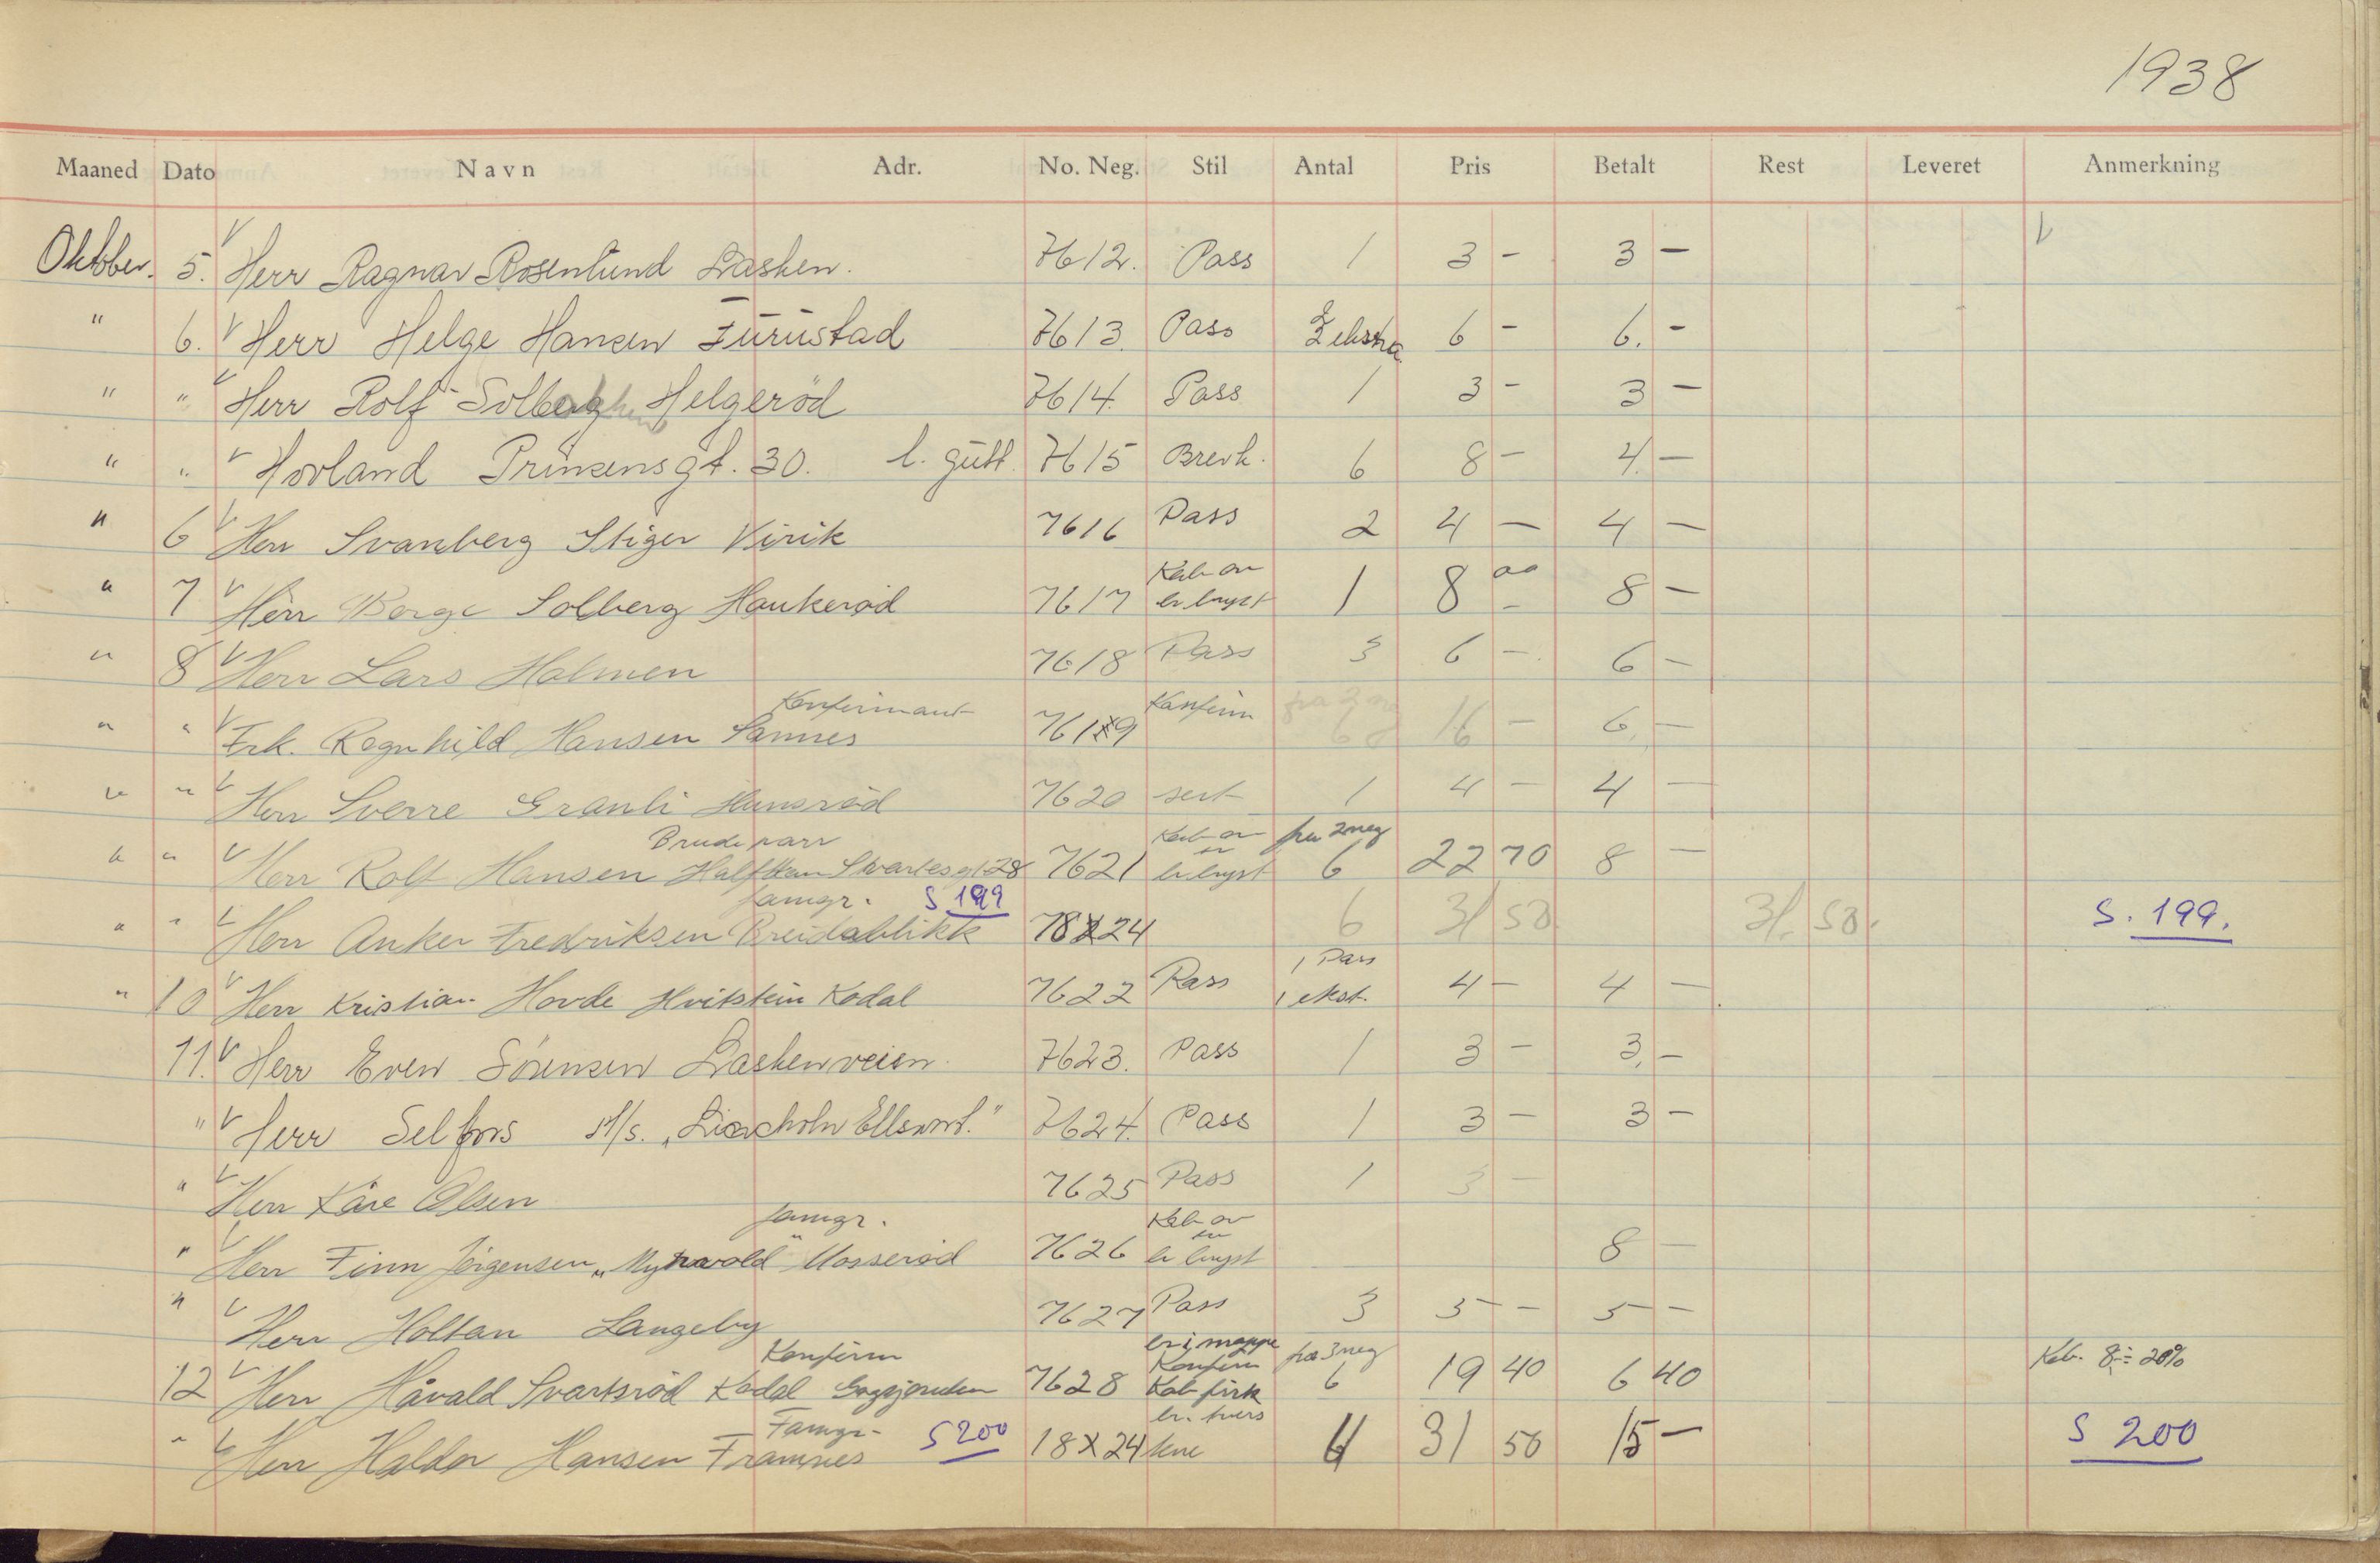 1938
Maaned Dato Navn Adr. No. Neg. Stil Antal Pris Betalt Rest Leveret Anmerkning
Oktober. 5. Herr Ragnar Rosenlund Lasken. 7612. Pass 1 3 - 3 -
" 6. Herr Helge Hansen Furustad 7613. Pass 2 ekstra 6 - 6. -
" " Herr Rolf Solberg Helgeröd 7614. Pass 1 3 - 3 -
" " Hovland Prinsensgt. 30. l. gutt. 7615 Brevk. 6 8 - 4. -
" 6 Herr Svanberg Stiger Virik 7616 Pass 2 4 - 4 -
Kab on
" 7 Herr Borge Solberg Haukeröd 7617 1 8 00 8 -
" 8 Herr Lars Holmen 7618 Pass 3 6 - 6 -
Konfirmant Konfirm
" " Frk. Ragnhild Hansen Sannes 7619 6 16 - 6. -
" " Herr Sverre Granli Hunsröd 7620 1 4 - 4 -
Brudepar Kab on fra 2 neg
" " Herr Rolf Hansen Halfdan Svartesgt 28 7621 6 22 70 8 -
famgr. S 199
" " Herr Anker Fredriksen Breidablikk 18x24 6 31 50 31. 50. S. 199.
1 Pass
" 10 Herr Kristian Hovde Hvitstein Kodal 7622 Pass 1 ekst. 4 - 4 -
11. Herr Even Sörensen Laskenveien 7623. Pass 1 3 - 3, -
" Herr Selfors M/s. "Lincholn Ellswort." 7624. Pass 1 3 - 3 -
" Herr Kåre Olsen 7625 Pass 1 3 -
famgr. Kab on
" Herr Finn Jörgensen "Myrvold" Mosseröd 7626 8 -
" Herr Holtan Langeby 7627 Pass 3 5 - 5 -
Konfirm Konfirm fra 3 neg Kab. 8 ÷ 20%
12 Herr Håvald Svartsröd Kodal 7628 Kab 6 19 40 6 40
Famgr- S 200
" Herr Haldor Hansen Framnes 18x24 31 50 15 - S 200